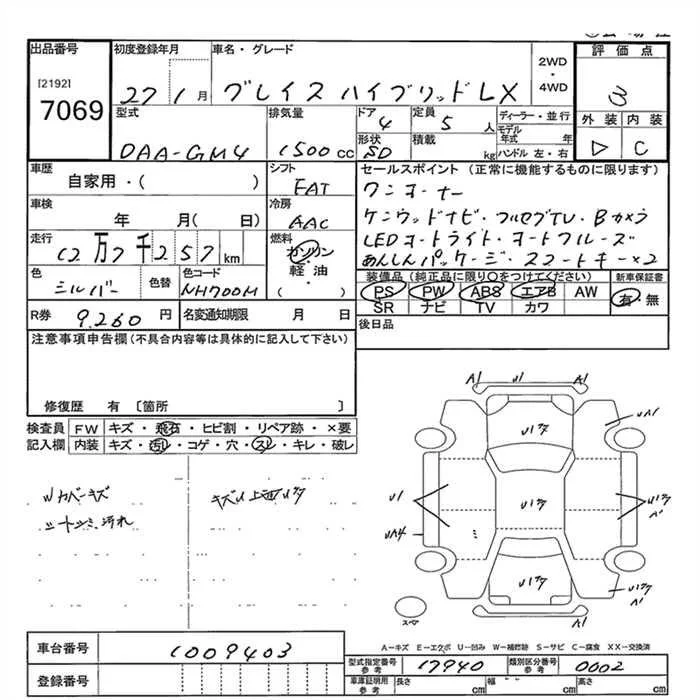 出品番号
[2192]
7069
初度登録年月
27 1 月
車名・グレード
グレイス ハイブリッド LX
2WD
・
4WD
評価点
3
型式
DAA-GM4
排気量
1500 cc
ドア
4
定員
5 人
ディーラー・並行
モデル
年式 年
形状
SD
積載 kg
ハンドル 左・右
外装 内装
C
車歴
自家用・( )
シフト
FAT
セールスポイント(正常に機能するものに限ります)
ワンオーナー
ケンウッドナビ・フルセグTV・Bカメラ
LEDオートライト・オートクルーズ
あんしんパッケージ・スマートキー×2
車検
年 月( 日)
冷房
AAC
走行
12万7千257 km
燃料
ガソリン
・軽・油・
( )
色
シルバー
色替
色コード
NH700M
装備品(純正品に限り〇をつけてください)
PS PW ABS エアB AW
SR ナビ TV カワ
新車保証書
有・無
R券 9,260 円
名変通知期限 月 日
後日品
注意事項申告欄(不具合内容等は具体的に記入して下さい)
修復歴 有 〔箇所 〕
検査員
記入欄
FW キズ・飛石・ヒビ割・リペア跡・×要
内装 キズ・汚れ・コゲ・穴・スレ・キレ・破レ
Wカバーキズ
シートシミ、汚れ
A1 U1 A1
UA1
U1
UA4
スペア
A1
A1
A―キズ E―エクボ U―凹み W―補修跡 S―サビ C―腐食 XX―交換済
車台番号 1009403
登録番号
型式指定番号
参考
17940
類別区分番号
参考
0002
車庫証明用
参考
長さ cm 幅 cm 高さ cm